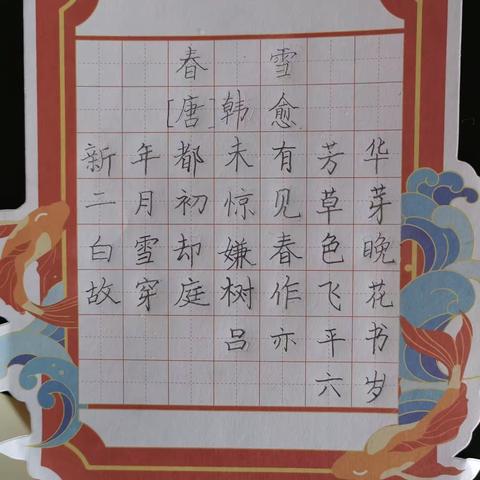 春雪
[唐]韩愈
新年都未有芳华
二月初惊见草芽
白雪却嫌春色晚
故穿庭树作飞花
吕亦平书
六岁